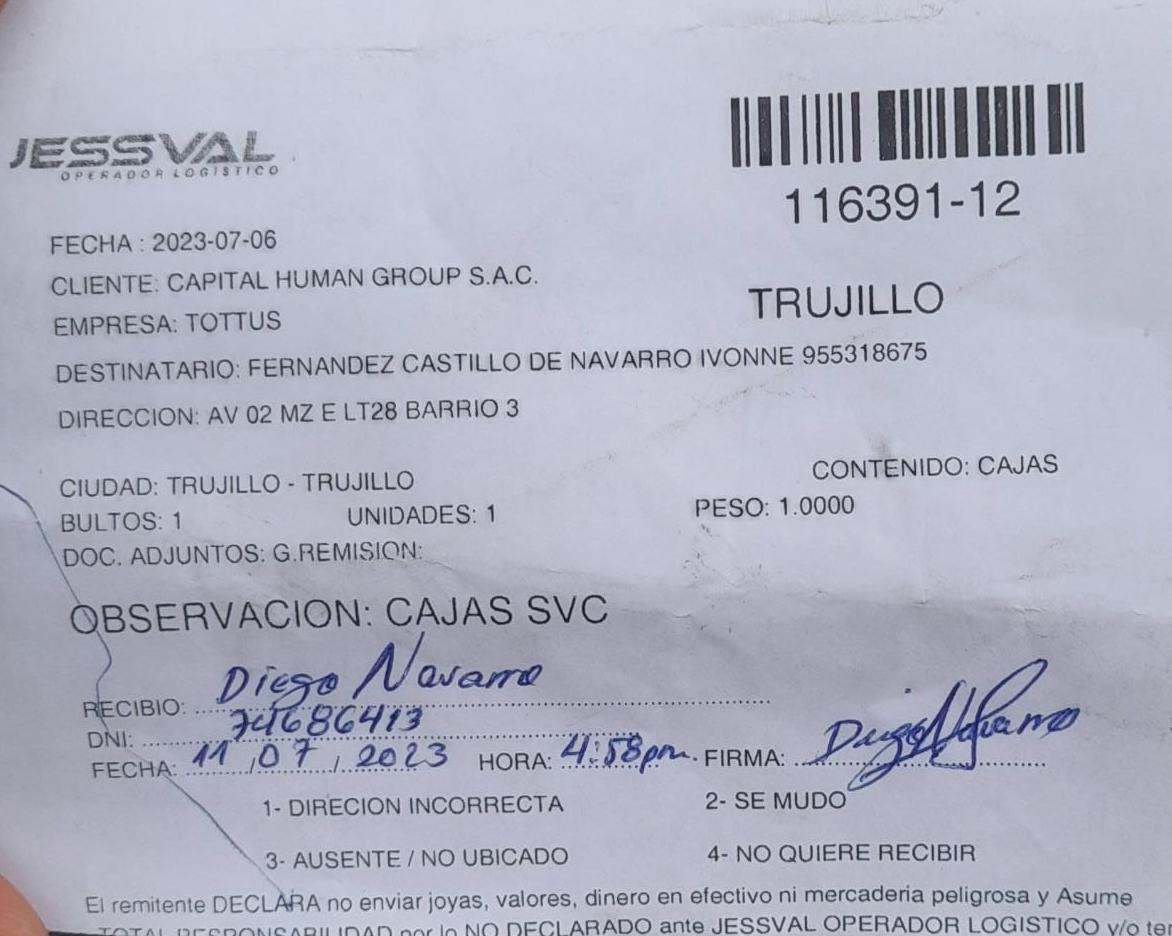 JESSVAL
OPERADOR LOGISTICO
116391-12
FECHA : 2023-07-06
CLIENTE: CAPITAL HUMAN GROUP S.A.C.
EMPRESA: TOTTUS
TRUJILLO
DESTINATARIO: FERNANDEZ CASTILLO DE NAVARRO IVONNE 955318675
DIRECCION: AV 02 MZ E LT28 BARRIO 3
CIUDAD: TRUJILLO - TRUJILLO
CONTENIDO: CAJAS
BULTOS: 1 UNIDADES: 1 PESO: 1.0000
DOC. ADJUNTOS: G.REMISION:
OBSERVACION: CAJAS SVC
RECIBIO: Diego Navarro
DNI: 74686413
FECHA: 11/07/2023 HORA: 4:58pm. FIRMA: Diego Navarro
1- DIRECION INCORRECTA 2- SE MUDO
3- AUSENTE / NO UBICADO 4- NO QUIERE RECIBIR
El remitente DECLARA no enviar joyas, valores, dinero en efectivo ni mercaderia peligrosa y Asume
TOTAL RESPONSABILIDAD por lo NO DECLARADO ante JESSVAL OPERADOR LOGISTICO y/o